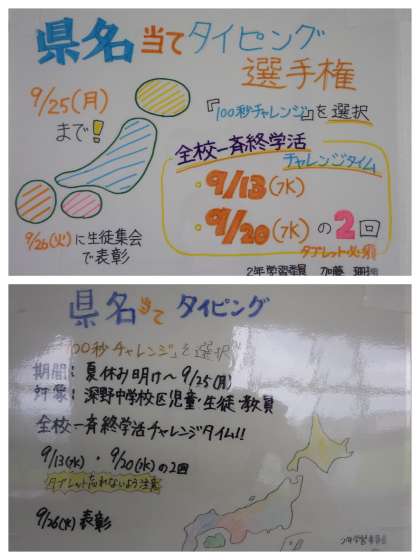 県名当てタイピング
選手権
9/25(月)
まで!
『100秒チャレンジ』を選択
全校一斉終学活
チャレンジタイム
・9/13(水)
・9/20(水)の2回
タブレット必須
9/26(火)に生徒集会
で表彰
2年学習委員 加藤
県名当てタイピング
「100秒チャレンジ」を選択
期間:夏休み明け〜9/25(月)
対象:深野中学校区児童・生徒・教員
全校一斉終学活チャレンジタイム!!
9/13(水)・9/20(水)の2回
タブレット忘れないよう注意
9/26(火)表彰
2年学習委員